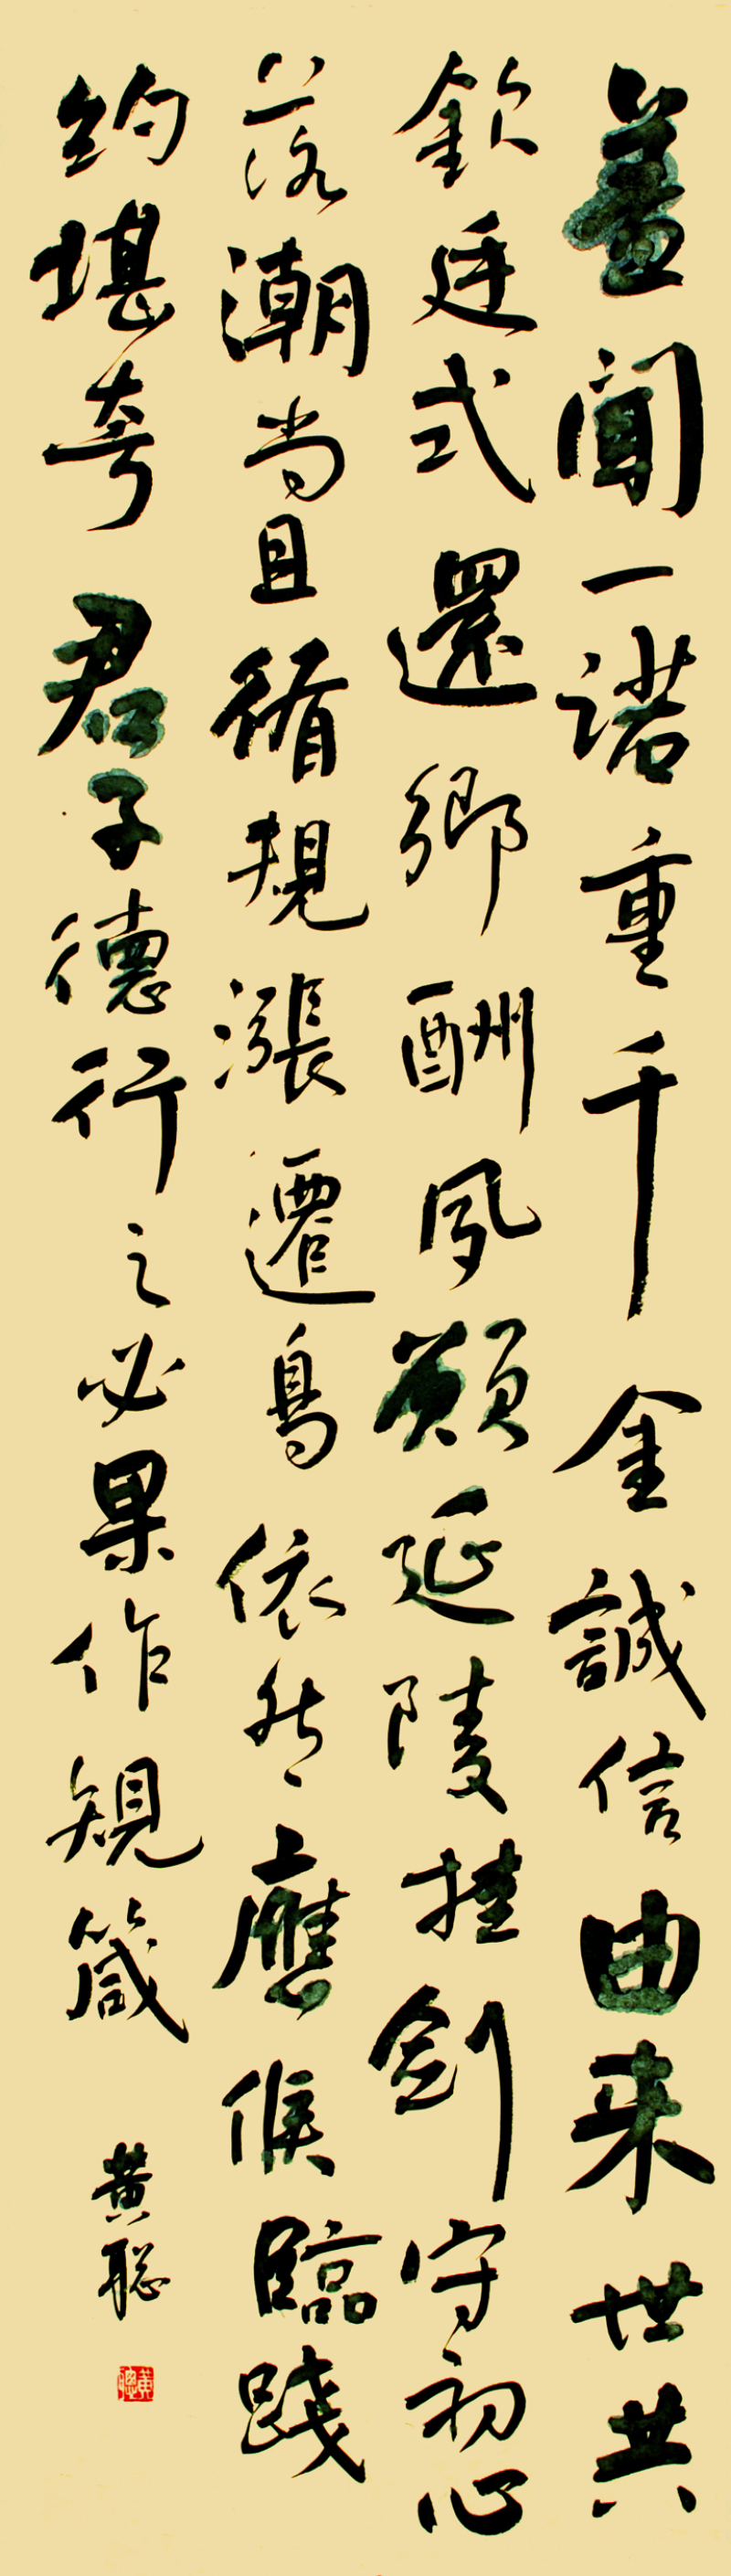 蓋聞一諾重千金誠信由来世共
欽廷式還鄉酬夙願延陵挂劍守初心
落潮尚且循規漲遷鳥依然應候臨踐
約堪奇君子德行之必果作規箴
黄聪
黄聰